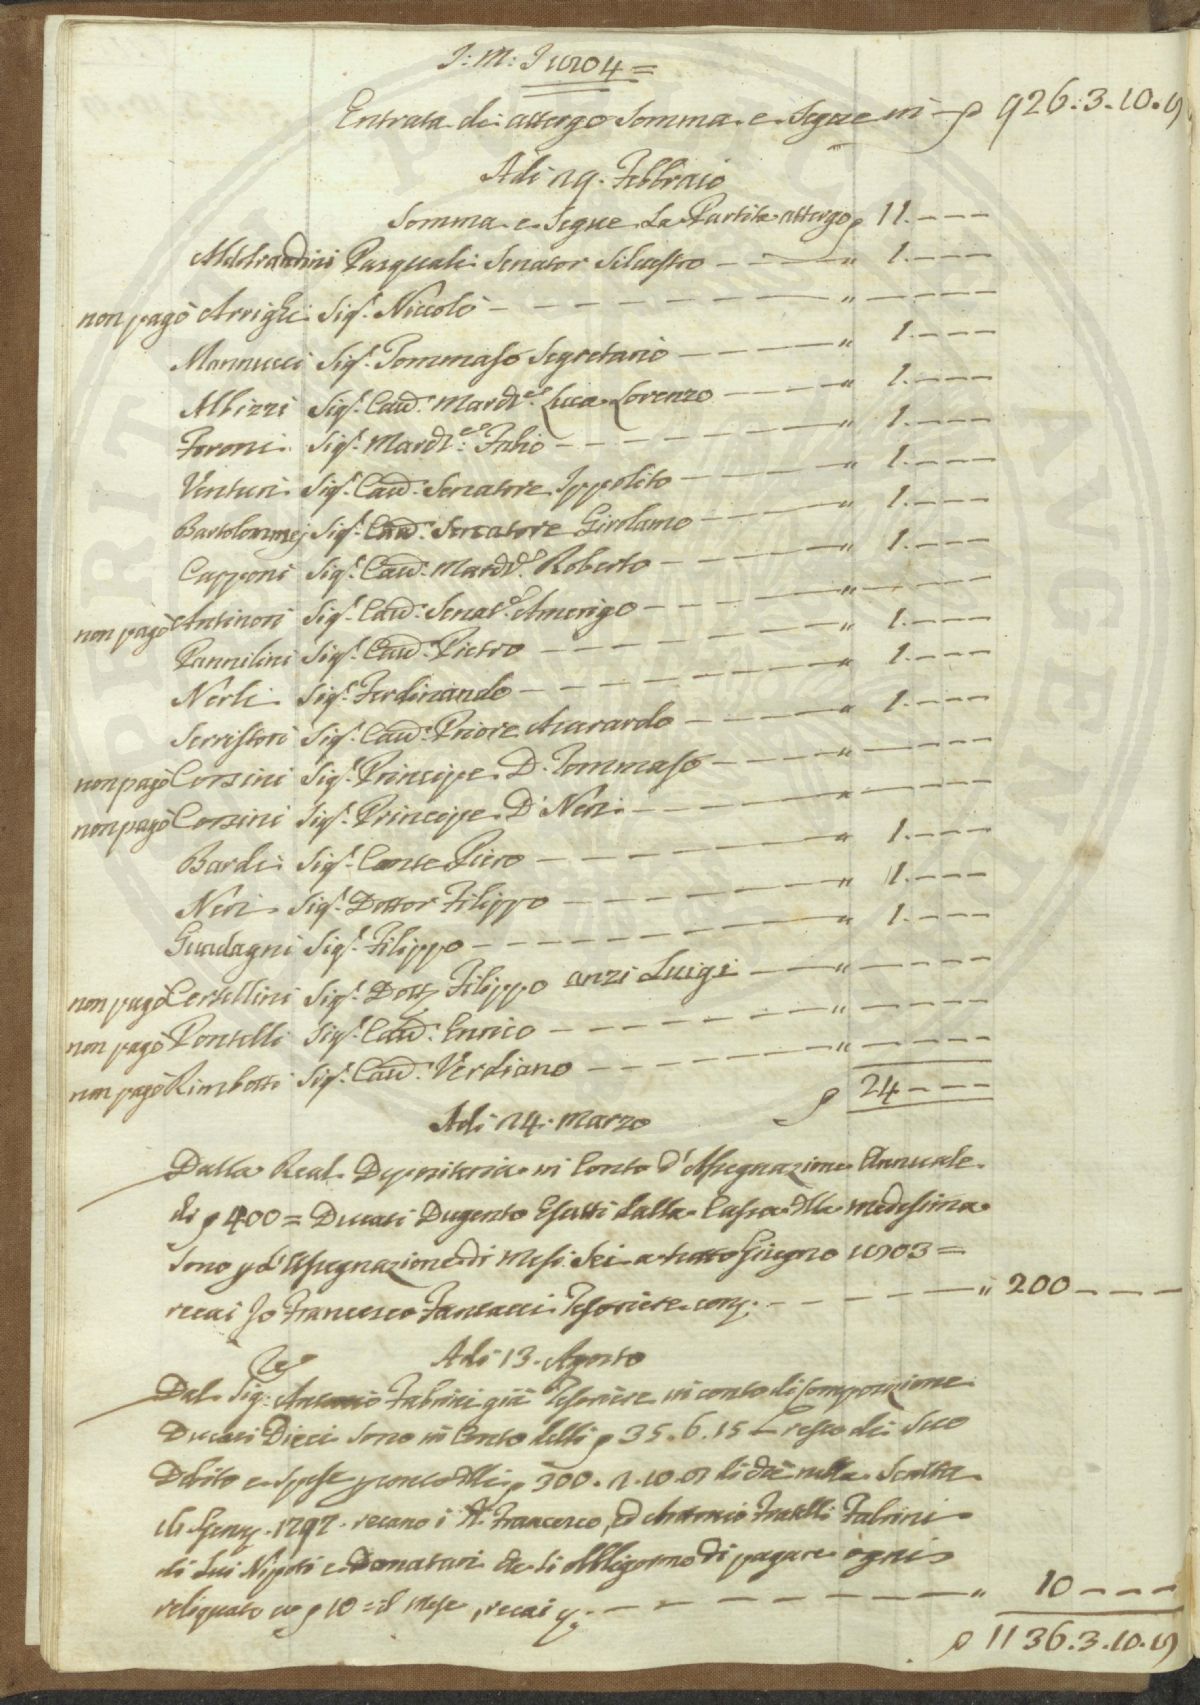 J: M: J 1804 =
Entrata di attergo Somma e Segue in ₽ 926.3.10.8
Adi 29. Febbraio
Somma e Segue La Partita attergo ₽ 11.---
Aldobrandini Pasquali Senator Silvestro " 1.---
non pagò Arrighi Sig.r Niccolò " ---
Mannucci Sig.r Tommaso Segretario " 1.---
Albizzi Sig.r Cav.r March.e Luca Lorenzo " 1.---
Feroni Sig.r March.e Fabio " 1.---
Venturi Sig.r Cav.r Senatore Ippolito " 1.---
Bartolommej Sig.r Cav.r Senatore Girolamo " 1.---
Capponi Sig.r Cav.r March.e Roberto " 1.---
non pagò Antinori Sig.r Cav.r Senat.e Amerigo " ---
Pannilini Sig.r Cav.r Pietro " 1.---
Nerli Sig.r Ferdinando " 1.---
Serristori Sig.r Cav.r Priore Averardo " 1.---
non pagò Corsini Sig.r Principe D. Tommaso " ---
non pagò Corsini Sig.r Principe D. Neri " ---
Bardi Sig.r Conte Piero " 1.---
Neri Sig.r Dottor Filippo " 1.---
Guadagni Sig.r Filippo " 1.---
non pagò Cortellini Sig.r Dott. Filippo anzi Luigi " ---
non pagò Pontelli Sig.r Cav.r Enrico " ---
non pagò Rimbotti Sig.r Cav.r Verdiano " ---
₽ 24 ---
Adi 24. Marzo
Dalla Real Depositeria in Conto d'Assegnazione Annuale
di ₽ 400 = Ducati Dugento Esatti dalla Cassa della medesima
sono p d'Assegnazione di Mesi Sei a tutto Giugno 1803 =
recai Io Francesco Fantacci Tesoriere " 200 ---
Adi 13. Agosto
Dal Sig.r Antonio Fabrini già Tesoriere in conto di Composizione
Ducati Dieci sono in Conto delli ₽ 35.6.15 resto di suo
Debito e Spese 300. 2.10.8 di che nella Scritta
1797. recano i Francesco, ed Antonio Fratelli Fabrini
di Lui Nipoti e Donatari che si obbligorno di pagare ogni
reliquato a ₽ 10 = il Mese, recai " 10 ---
₽ 1136.3.10.8